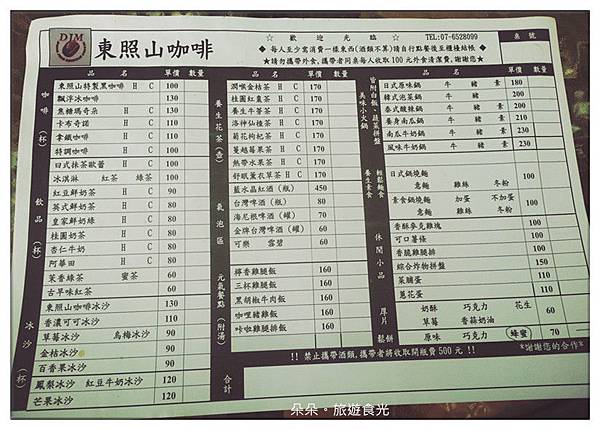 DJM
東照山咖啡
☆ 歡迎光臨 ☆ TEL:07-6528099
桌號
◆ 每人至少需消費一樣東西(酒類不算)請自行點餐後至櫃檯結帳 ◆
★請勿攜帶外食,攜帶者同桌每人收取 100 元外食清潔費,謝謝您★
品名 單價 數量
咖啡(杯)
東照山特製黑咖啡 H C 100
飄浮冰咖啡 130
焦糖瑪奇朵 H C 130
卡布奇諾 H C 110
拿鐵咖啡 H C 100
特調咖啡 H C 100
飲品(杯)
日式抹茶歐蕾 H C 100
冰淇淋 紅茶 綠茶 100
紅豆鮮奶茶 H C 90
英式鮮奶茶 H C 80
皇家鮮奶綠 H C 80
桂圓奶茶 H C 80
杏仁牛奶 H C 80
阿華田 H C 80
茉香綠茶 蜜茶 60
古早味紅茶 60
冰沙(杯)
東照山咖啡冰沙 130
香濃可可冰沙 110
草莓冰沙 烏梅冰沙 90
金桔冰沙 90
百香果冰沙 90
鳳梨冰沙 紅豆牛奶冰沙 120
芒果冰沙 120
品名 單價 數量
養生花茶(壺)
潤喉金桔茶 H C 170
桂圓紅棗茶 H C 170
養生牛蒡茶 H C 170
洛神仙楂茶 H C 170
菊花枸杞茶 H C 170
蔓越莓果茶 H C 170
熱帶水果茶 H C 170
舒眠薰衣草茶 H C 170
氣泡區
藍水晶紅酒(瓶) 450
台灣啤酒(瓶) 80
海尼根啤酒(罐) 70
金牌台灣啤酒(罐) 60
可樂 雪碧 60
元氣餐點(附湯)
檸香雞腿飯 160
三杯雞腿飯 160
黑胡椒牛肉飯 160
咖哩豬雞飯 160
咔啦雞腿排飯 160
合計
品名 單價 數量
美味小火鍋
皆附白飯、蔬菜拼盤
日式原味鍋 牛 豬 素 180
韓式泡菜鍋 牛 豬 200
泰式酸辣鍋 牛 豬 200
養身南瓜鍋 牛 豬 素 210
南瓜牛奶鍋 牛 豬 素 230
風味牛奶鍋 牛 豬 230
輕鬆麵食
養生素食
日式鍋燒麵 100
意麵 雞絲 冬粉
素食鍋燒麵 加蛋 不加蛋 100
意麵 雞絲 冬粉
休閒小品
香酥麥克雞塊 100
可口薯條 100
香脆雞腿排 100
綜合炸物拼盤 150
菜脯蛋 110
蔥花蛋 110
厚片
奶酥 巧克力 花生 60
草莓 香蒜奶油
鬆餅
原味 巧克力 蜂蜜 70
!! 禁止攜帶酒類,攜帶者將收取開瓶費 500 元 !!
*謝謝您的合作*
朵朵。旅遊食光